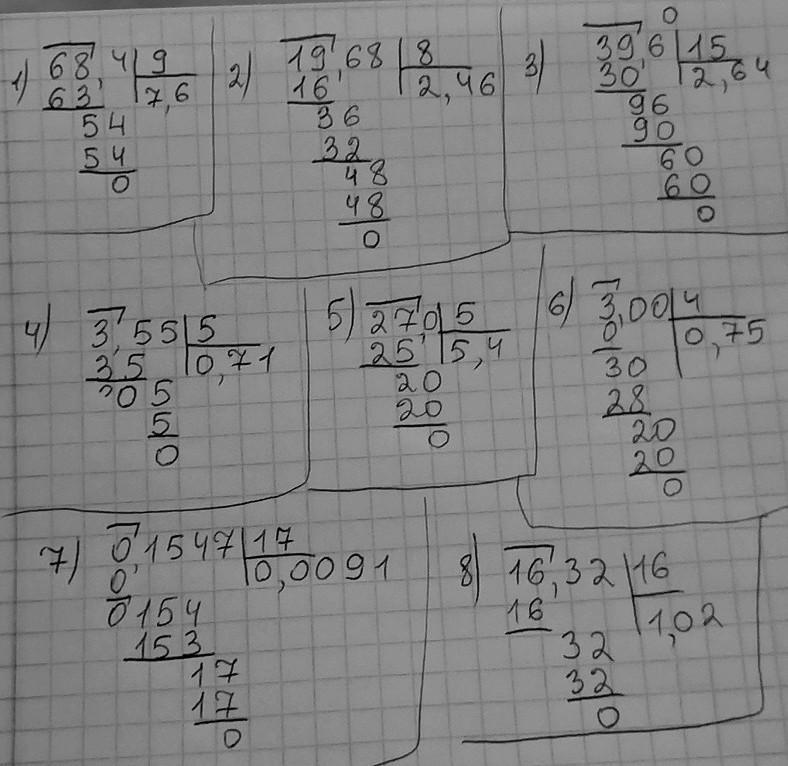 1) 68,4 | 9
63 | 7,6
54
54
0
2) 19,68 | 8
16 | 2,46
36
32
48
48
0
3) 39,6 0 | 15
30 | 2,64
96
90
60
60
0
4) 3,55 | 5
3,5 | 0,71
05
5
0
5) 27,0 | 5
25 | 5,4
20
20
0
6) 3,00 | 4
0 | 0,75
30
28
20
20
0
7) 0,1547 | 17
0 | 0,0091
0154
153
17
17
0
8) 16,32 | 16
16 | 1,02
32
32
0